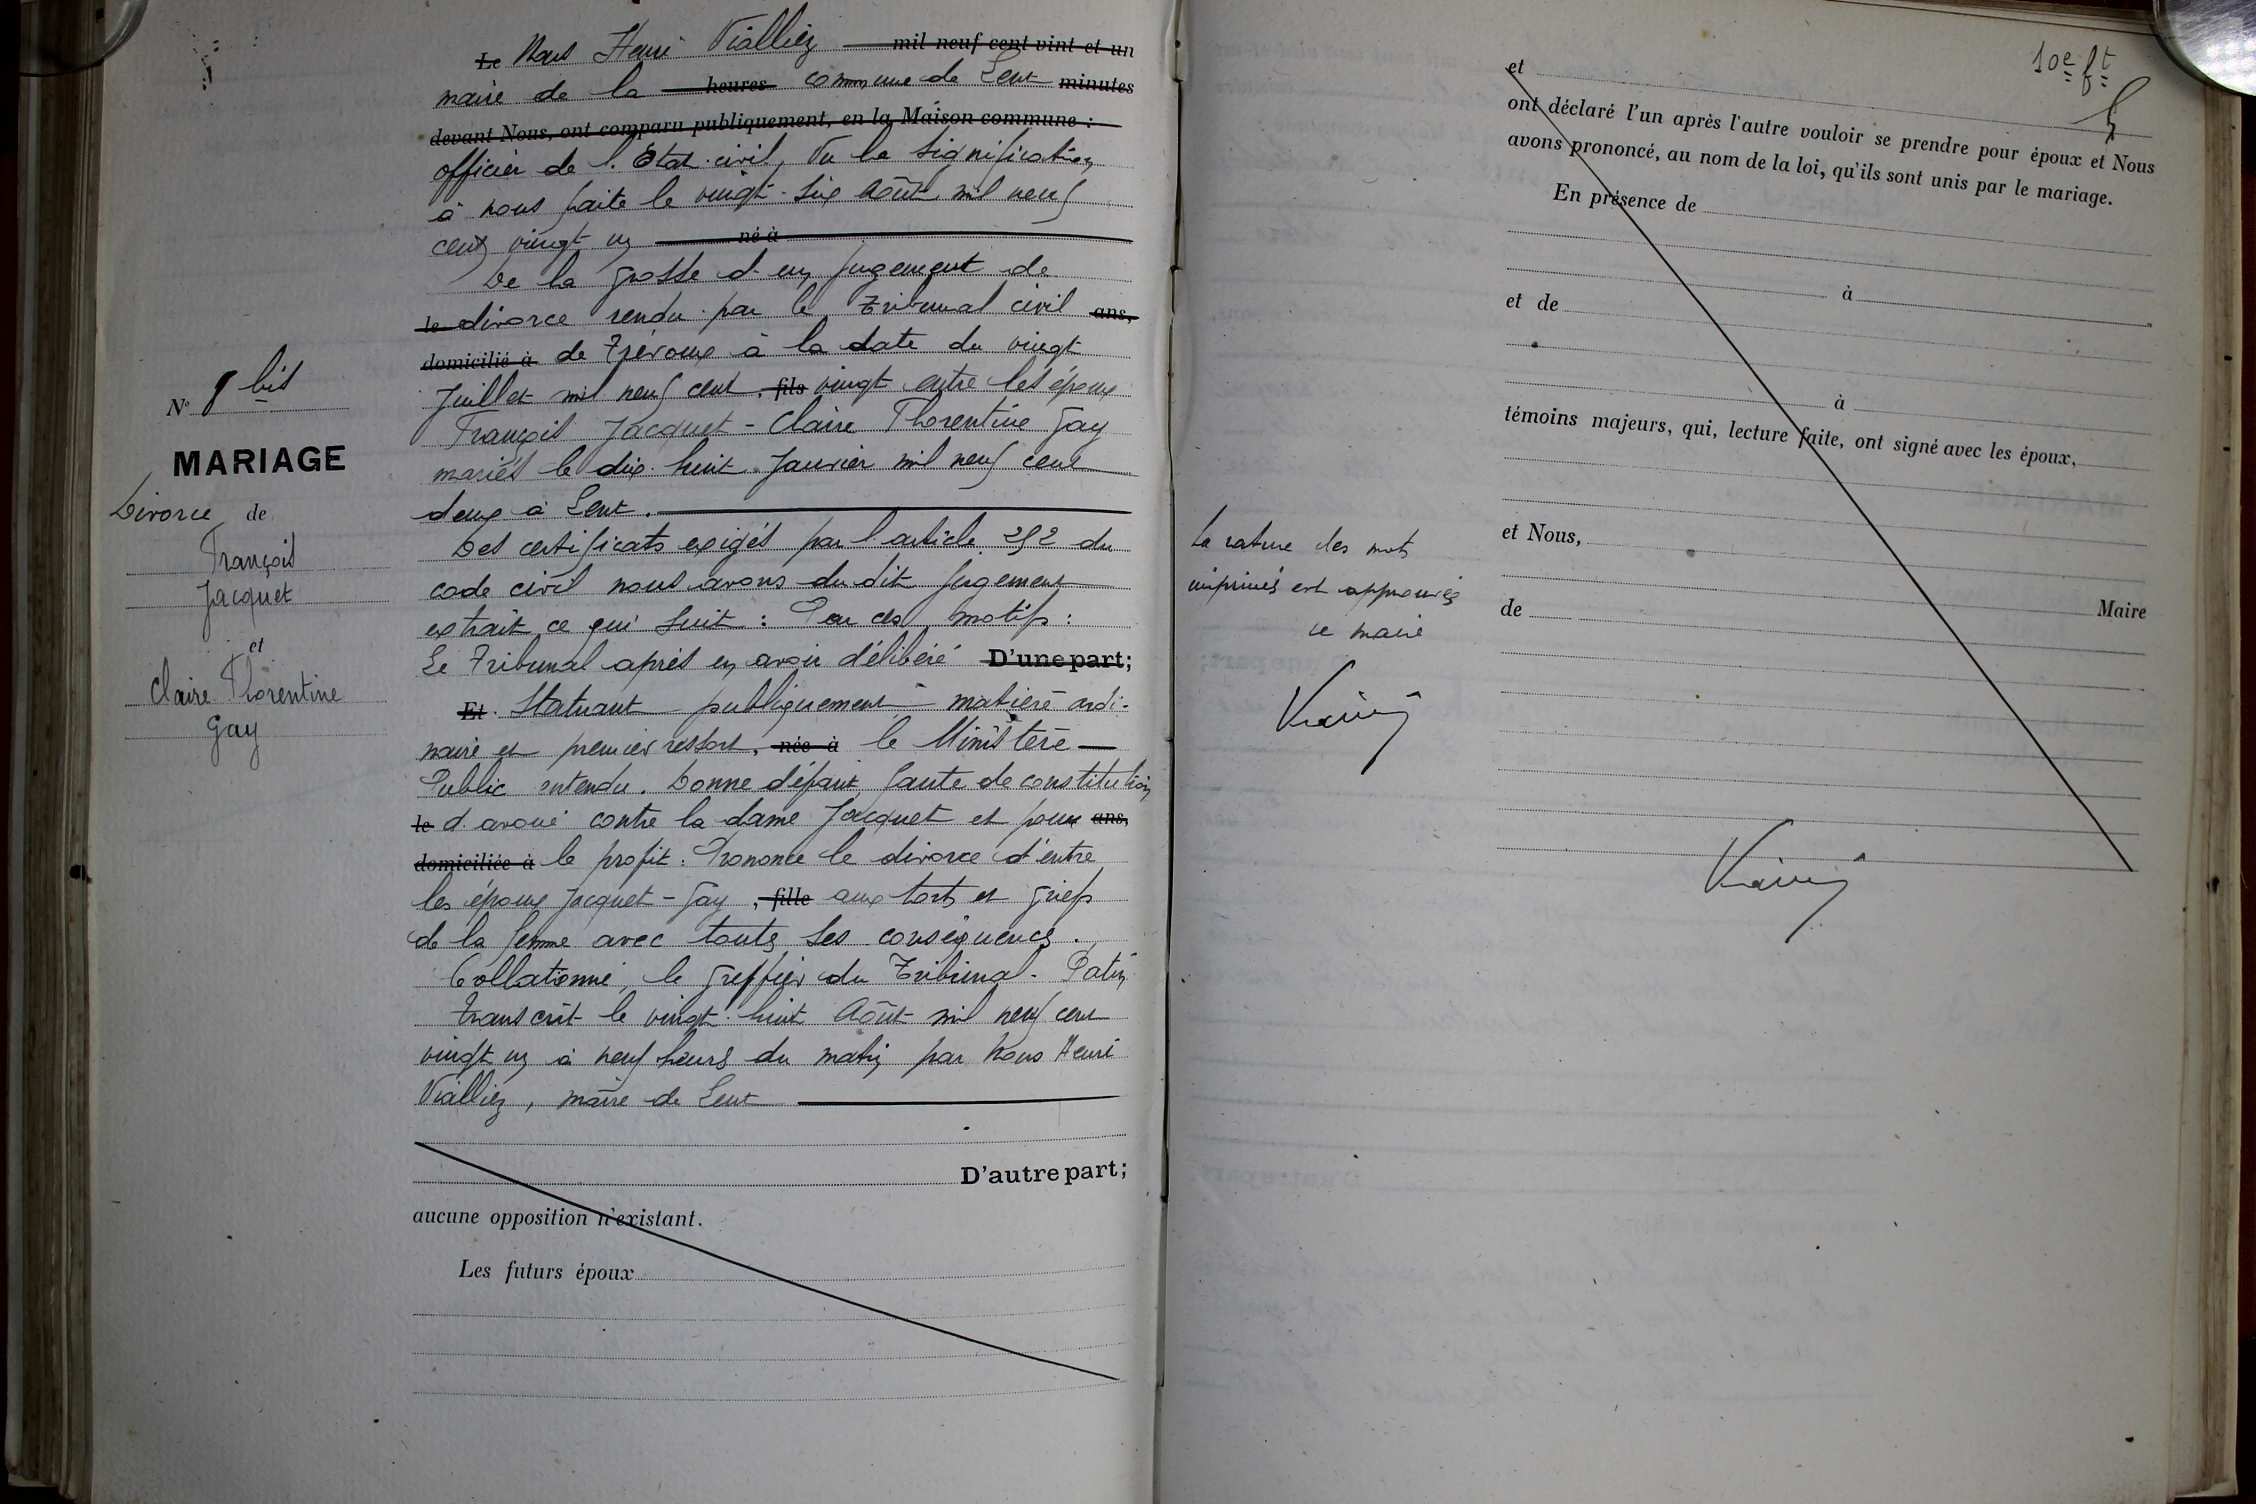 Le Nous Henri Vialliez mil neuf cent vint et un
maire de la heures commune de Lent minutes
devant Nous, ont comparu publiquement, en la Maison commune :
officier de l'Etat-civil, Vu la signification
à nous faite le vingt-six Août mil neuf
cent vingt un né à
De la grosse d'un jugement de
le divorce rendu par le Tribunal civil ans,
domicilié à de Trévoux à la date du vingt
Juillet mil neuf cent, fils vingt entre les époux
François Jacquet - Claire Florentine Gay
mariés le dix-huit Janvier mil neuf cent
deux à Lent.
Des certificats exigés par l'article 252 du
code civil nous avons du dit jugement
extrait ce qui suit : Par ces motifs :
Le Tribunal après en avoir délibéré D'une part;
Et. Statuant publiquement matière ordi-
naire et premier ressort, née à le Ministère
Public entendu. Donne défaut faute de constitution
le d'avoué contre la dame Jacquet et pour ans,
domiciliée à le profit. Prononce le divorce d'entre
les époux Jacquet-Gay, fille aux torts et griefs
de la femme avec toutes ses conséquences.
Collationné, le greffier du Tribunal. Patin
Transcrit le vingt-huit Août mil neuf cent
vingt un à neuf heures du matin par Nous Henri
Vialliez, maire de Lent
D'autre part;
aucune opposition n'existant.
Les futurs époux
N° 8 bis
MARIAGE
Divorce de
François
Jacquet
et
Claire Florentine
Gay
10e ft
et
ont déclaré l'un après l'autre vouloir se prendre pour époux et Nous
avons prononcé, au nom de la loi, qu'ils sont unis par le mariage.
En présence de
à
et de
à
témoins majeurs, qui, lecture faite, ont signé avec les époux,
et Nous,
Maire
de
La rature des mots
imprimés est approuvée
Le maire